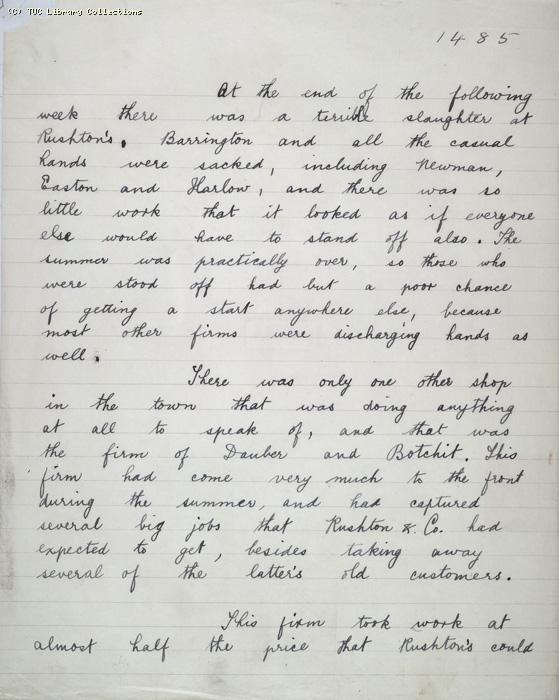 (C) TUC Library Collections
1485
At the end of the following
week there was a terrible slaughter at
Rushton's. Barrington and all the casual
hands were sacked, including Newman,
Easton and Harlow, and there was so
little work that it looked as if everyone
else would have to stand off also. The
summer was practically over, so those who
were stood off had but a poor chance
of getting a start anywhere else, because
most other firms were discharging hands as
well.
There was only one other shop
in the town that was doing anything
at all to speak of, and that was
the firm of Dauber and Botchit. This
firm had come very much to the front
during the summer, and had captured
several big jobs that Rushton & Co. had
expected to get, besides taking away
several of the latter's old customers.
This firm took work at
almost half the price that Rushton's could